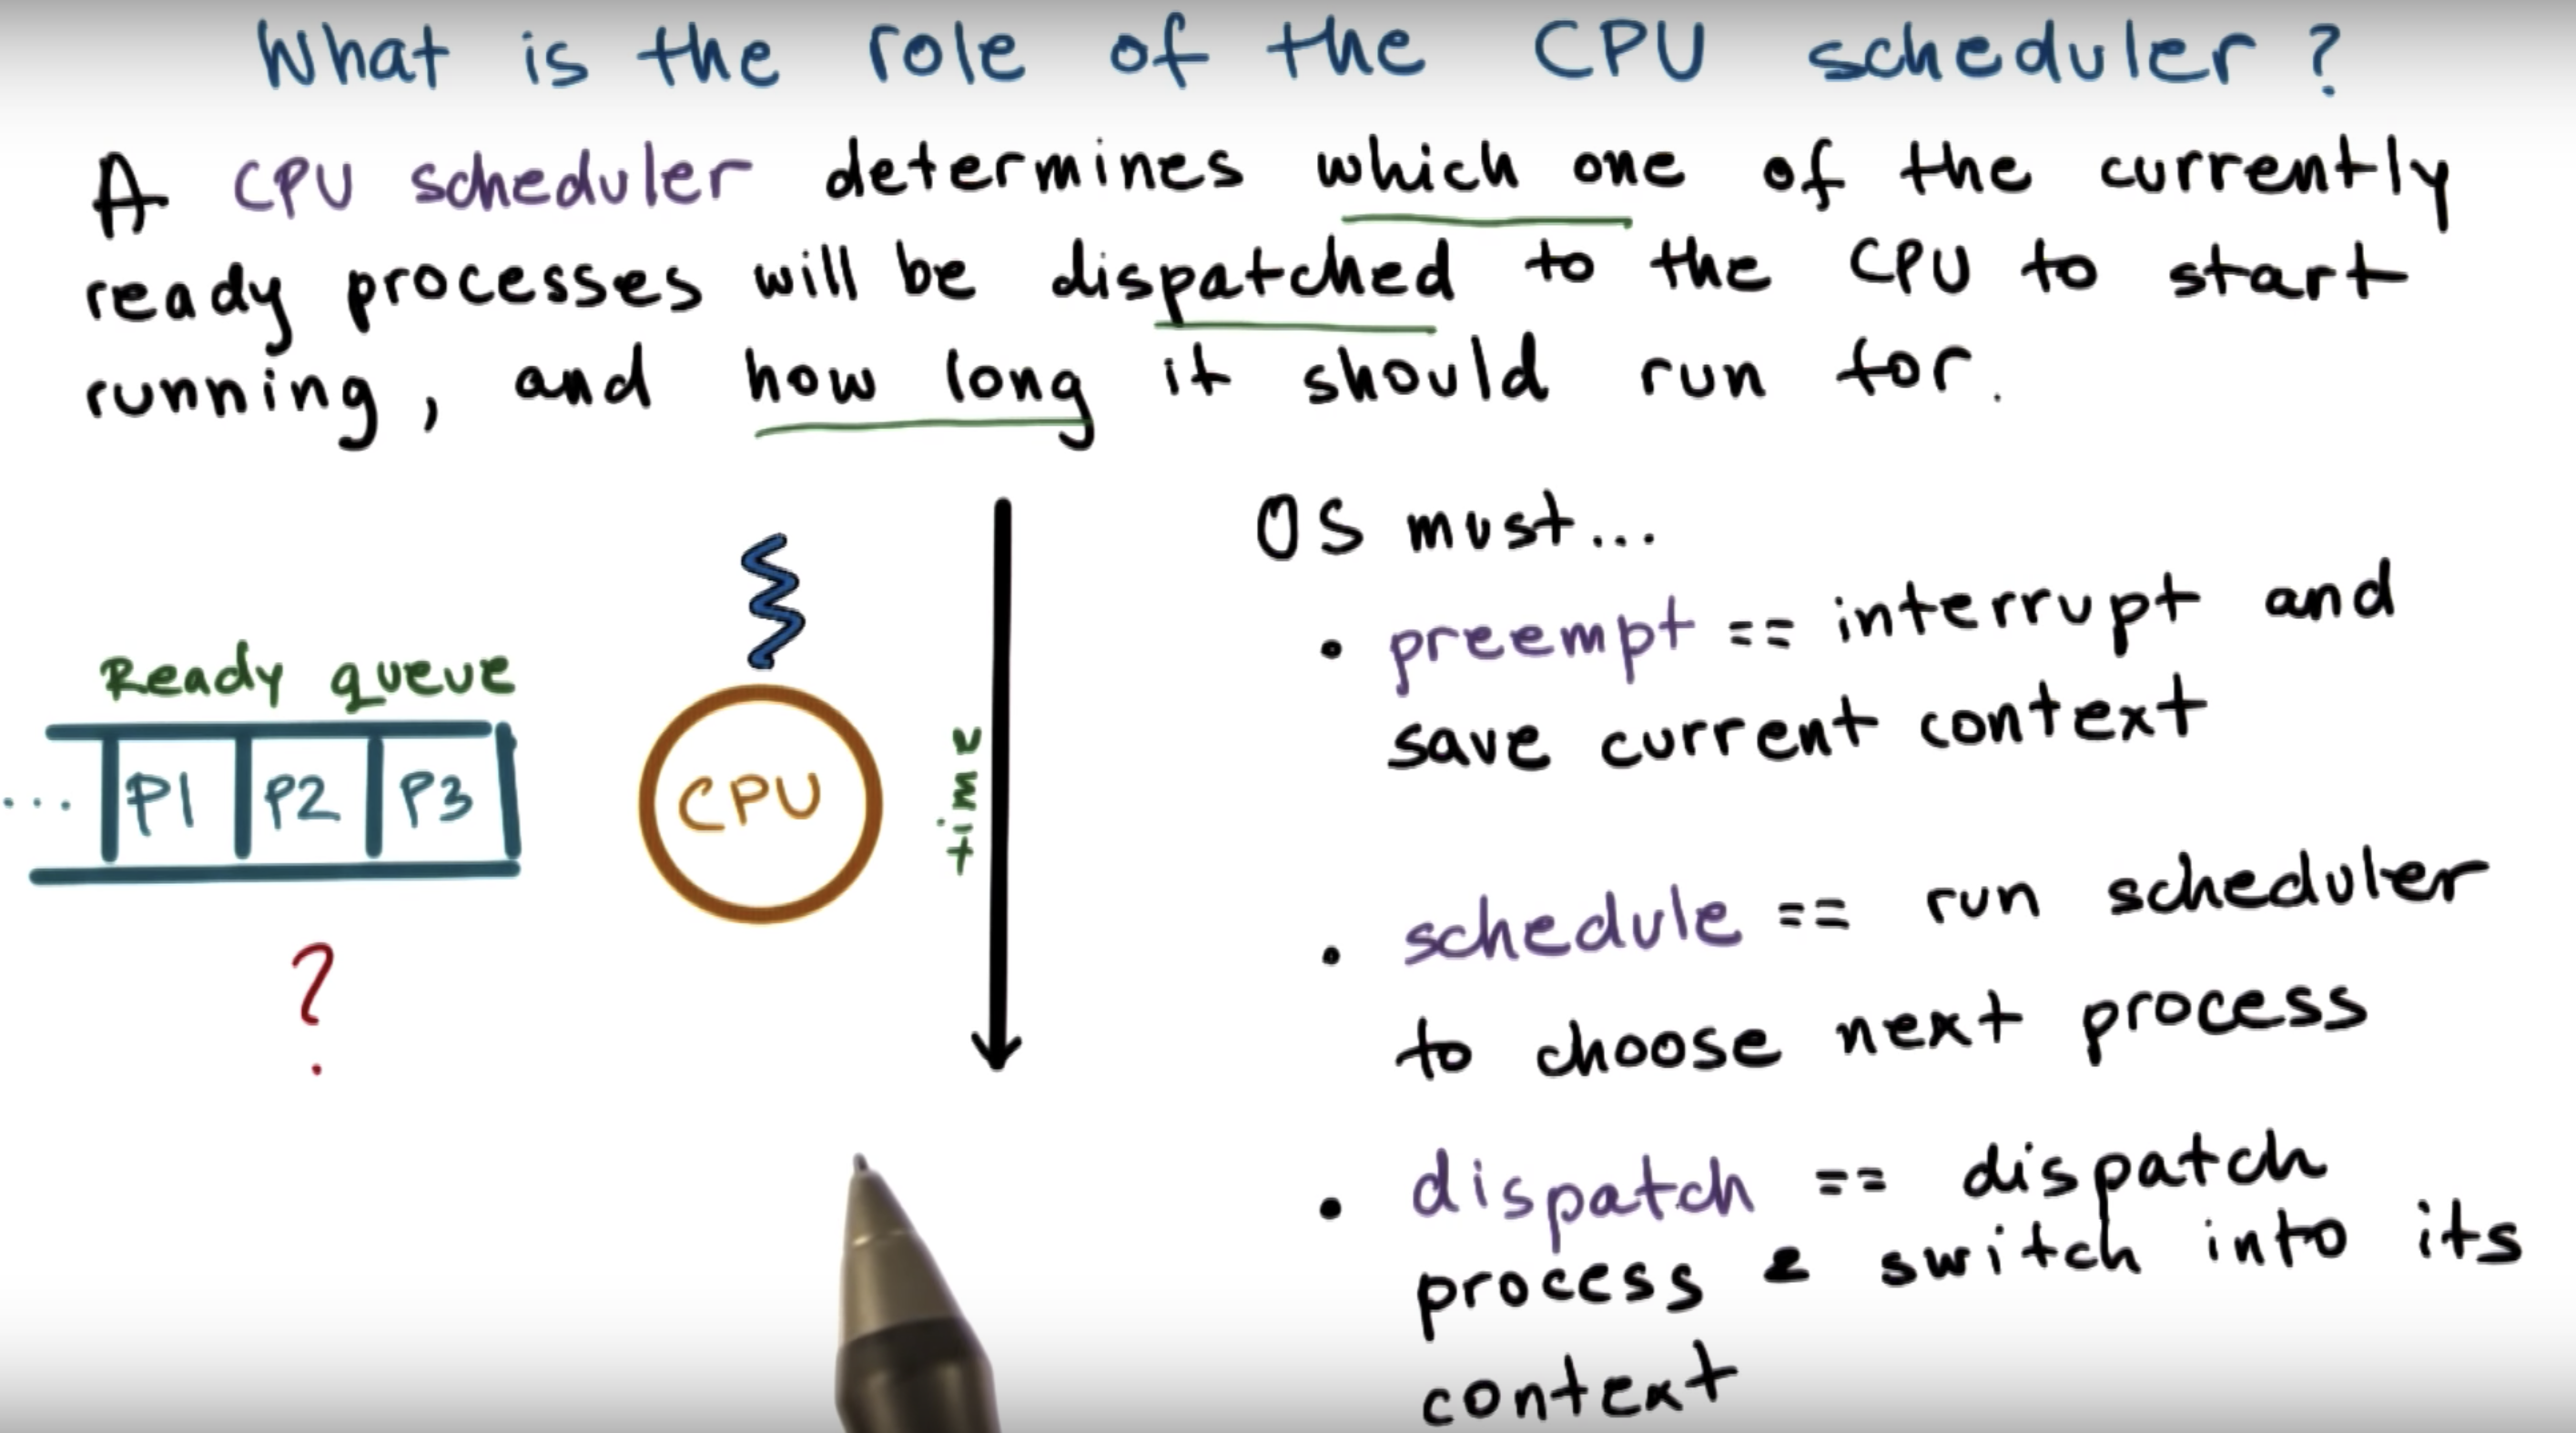 What is the role of the CPU scheduler?
A CPU scheduler determines which one of the currently
ready processes will be dispatched to the CPU to start
running, and how long it should run for.
Ready queue
... P1 P2 P3
?
CPU
time
OS must...
• preempt == interrupt and
save current context
• schedule == run scheduler
to choose next process
• dispatch == dispatch
process & switch into its
context